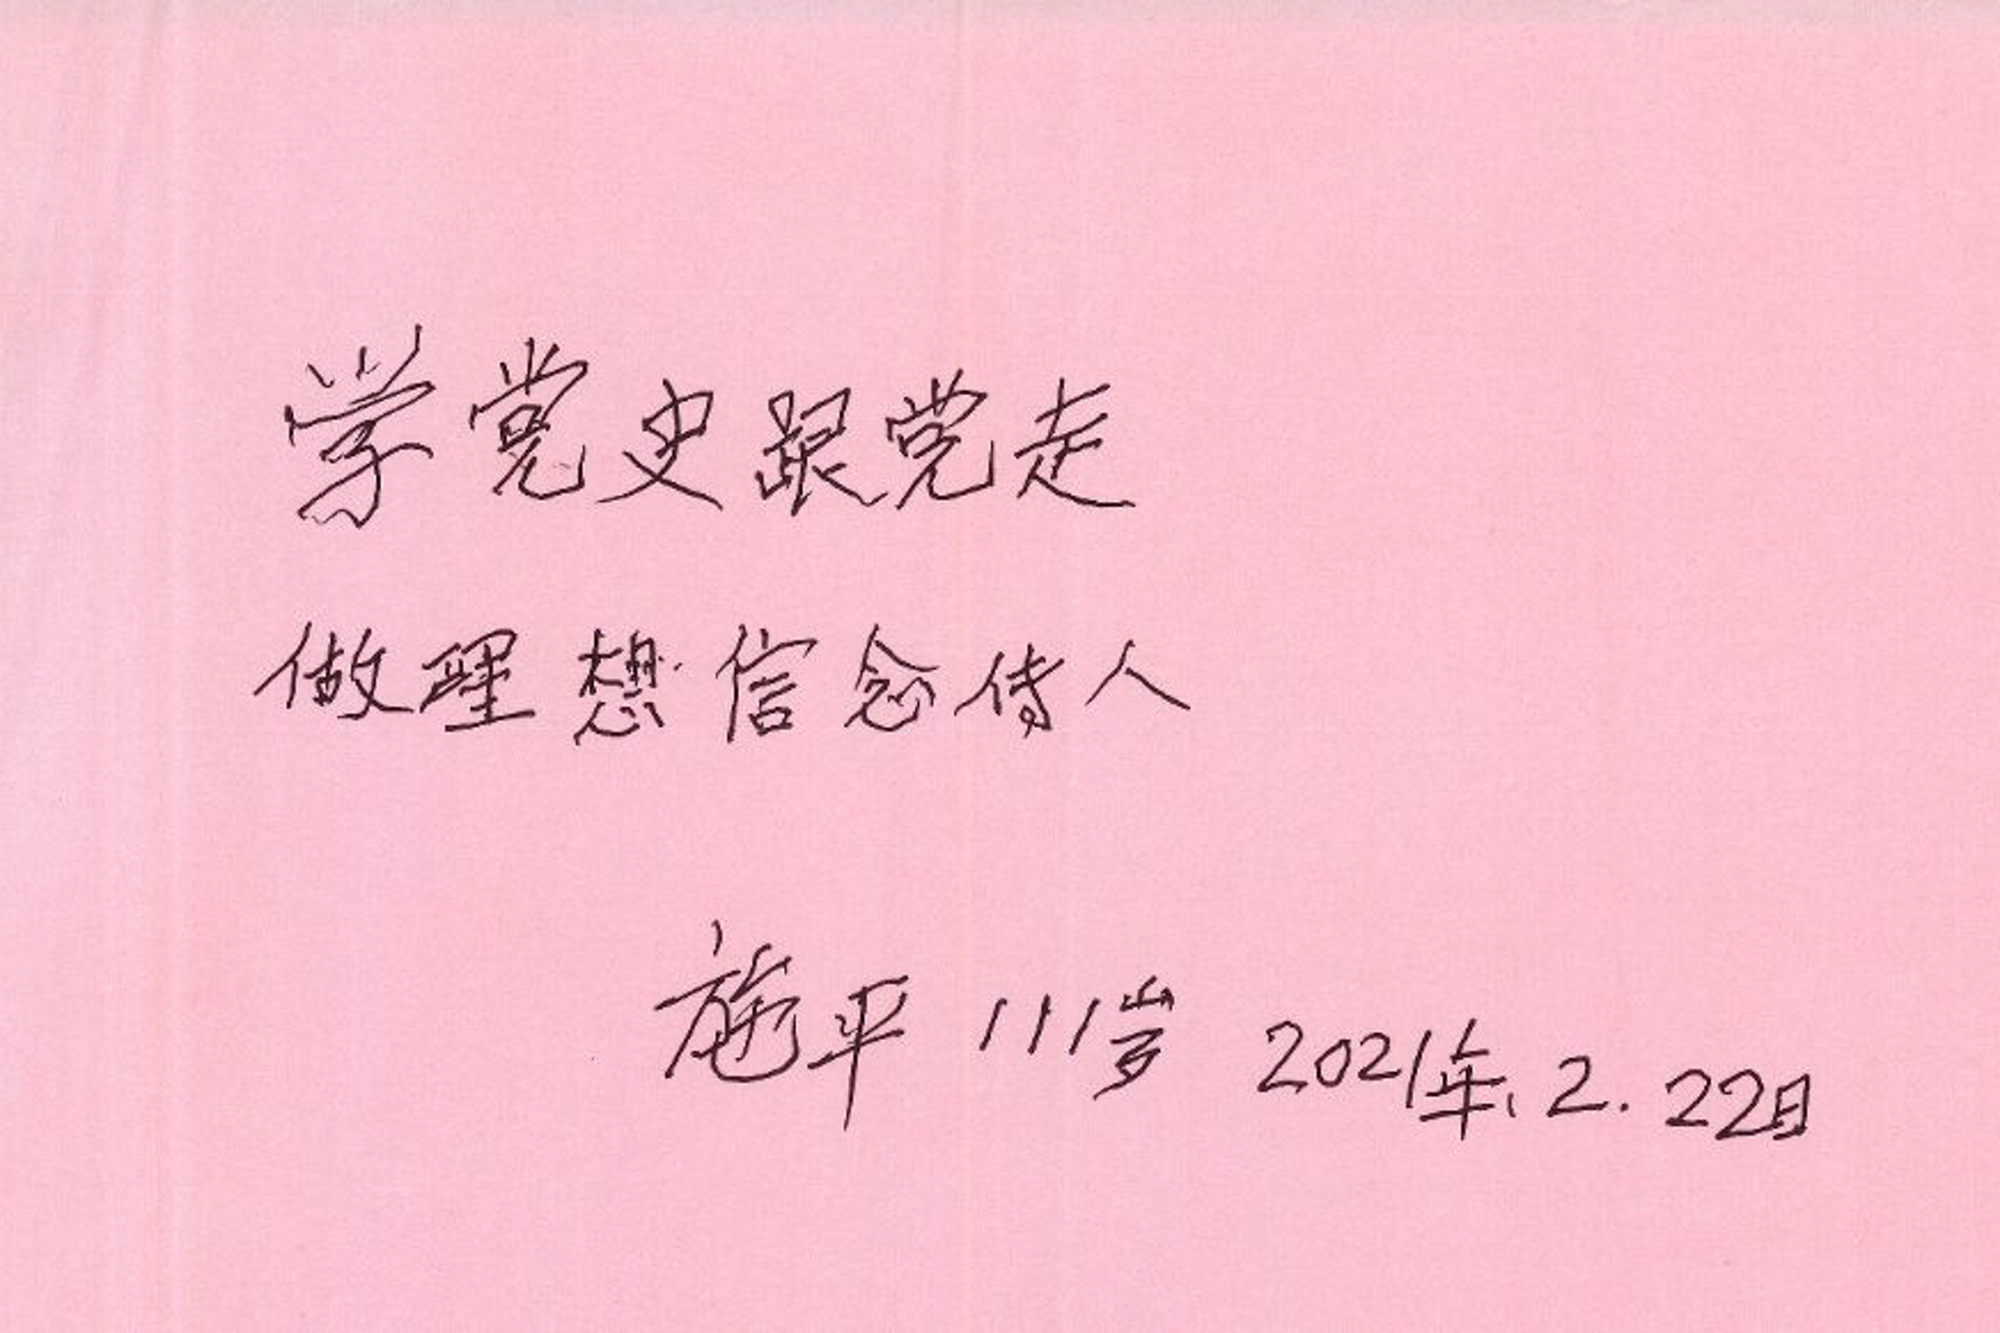 学党史跟党走
做理想信念传人
施平 111岁 2021年、2.22日